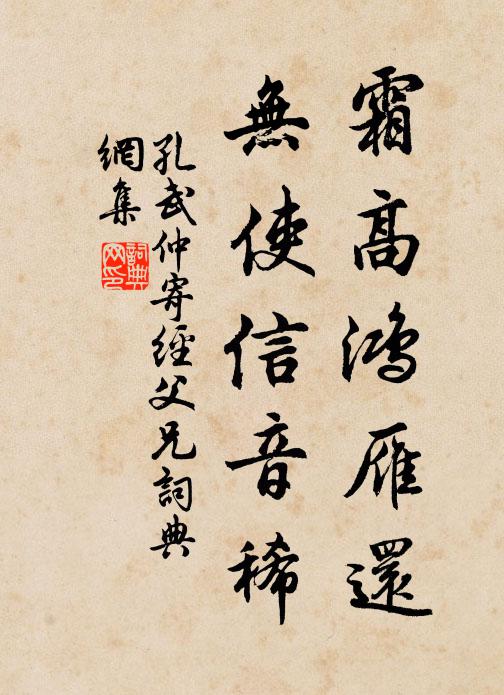 霜高鴻雁還
無使信音稀
孔武仲寄經父兄詞典
網集
詞典網印